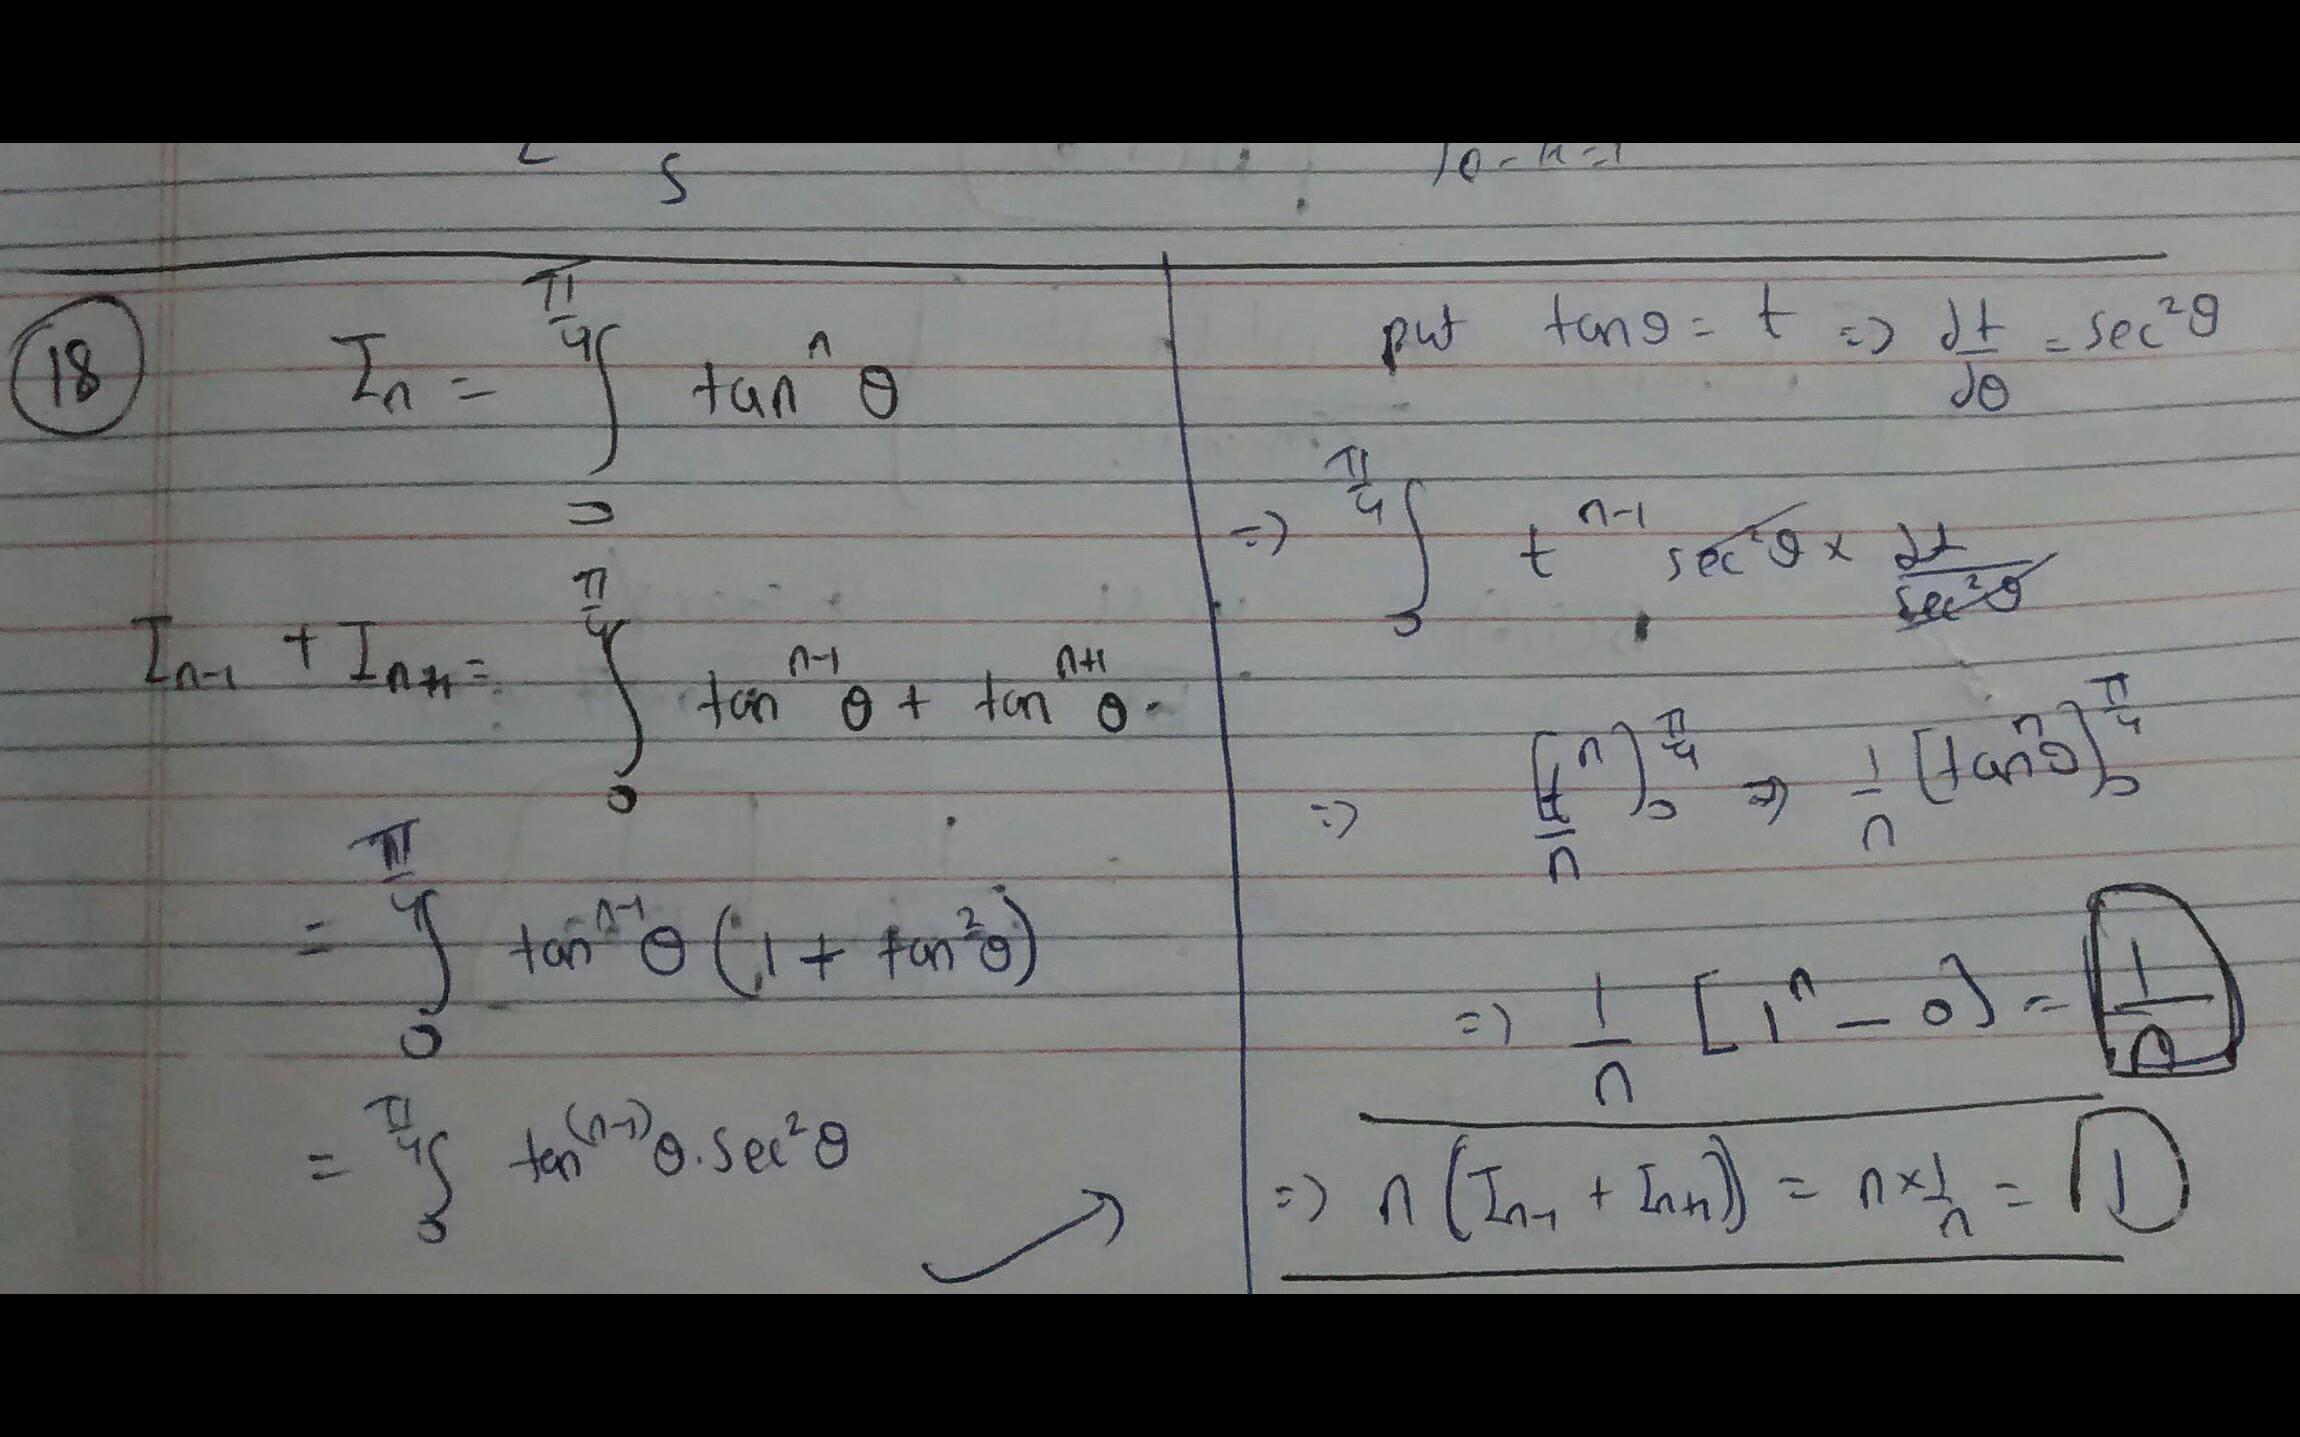 5
18
Iₙ = ∫₀^(π/4) tanⁿ θ
Iₙ₋₁ + Iₙ₊₁ = ∫₀^(π/4) tanⁿ⁻¹ θ + tanⁿ⁺¹ θ.
= ∫₀^(π/4) tanⁿ⁻¹ θ (1 + tan² θ)
= ∫₀^(π/4) tan⁽ⁿ⁻¹⁾ θ . sec² θ
put tan θ = t => dt/dθ = sec² θ
=> ∫₀^(π/4) tⁿ⁻¹ sec² θ × dt/sec² θ
=> [tⁿ/n]₀^(π/4) => 1/n [tanⁿ θ]₀^(π/4)
=> 1/n [1ⁿ − 0] = 1/n
=> n (Iₙ₋₁ + Iₙ₊₁) = n × 1/n = 1